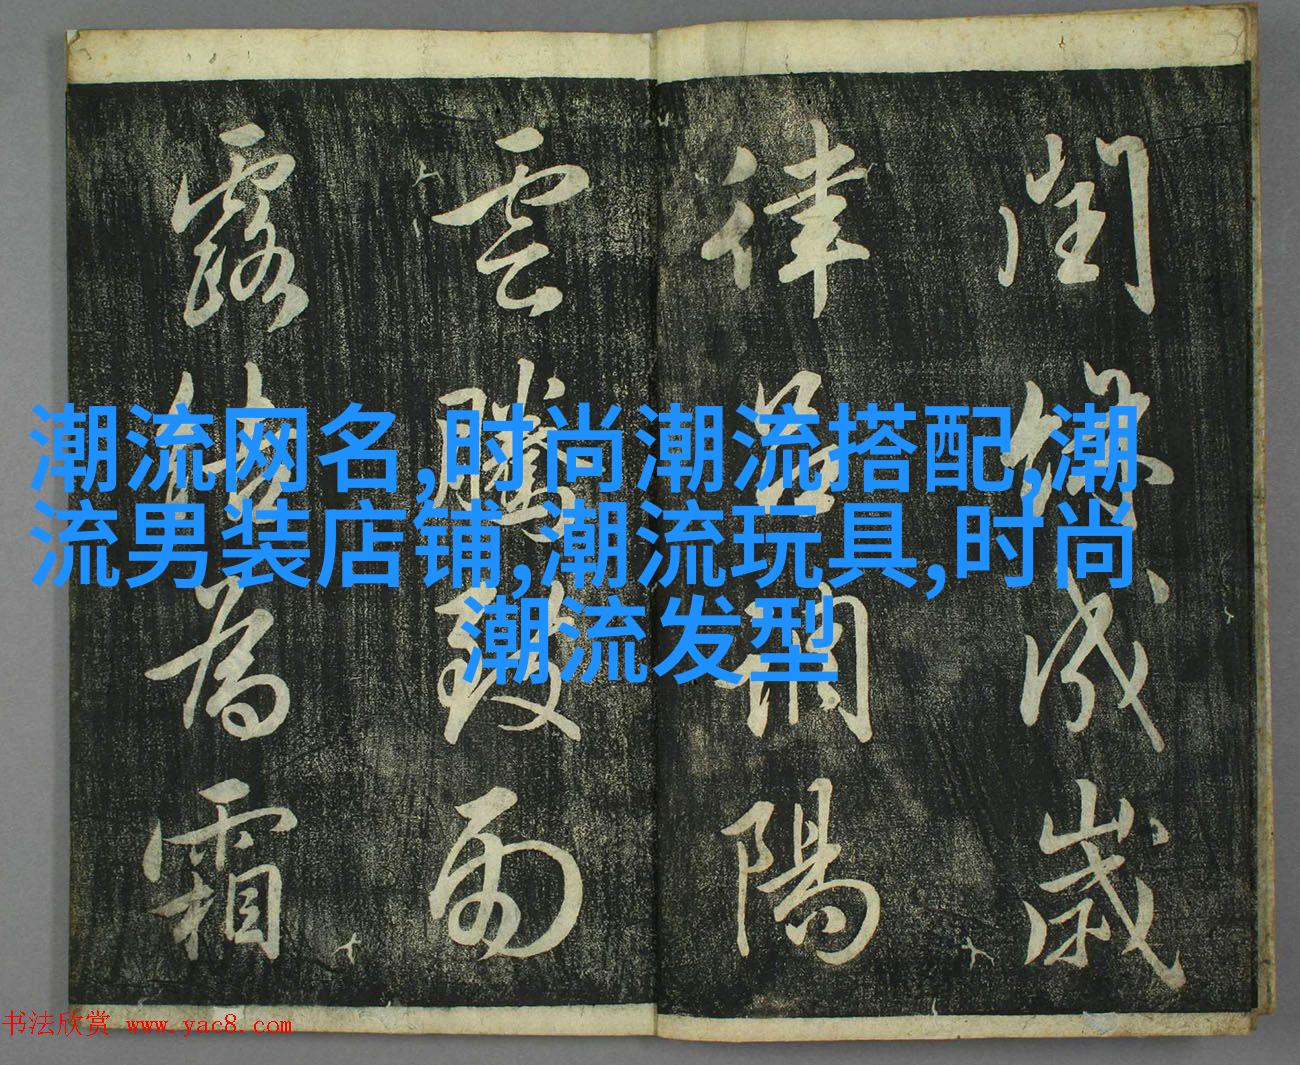 閏餘成歲
律呂調陽
雲騰致雨
露結為霜
潮流网名,时尚潮流搭配,潮
流男装店铺,潮流玩具,时尚
潮流发型
书法欣赏 www.yac8.com